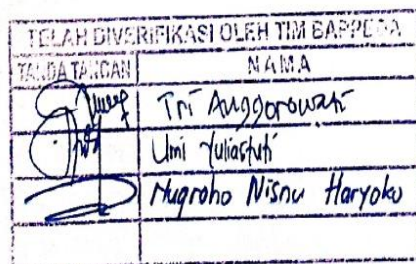 TELAH DIVERIFIKASI OLEH TIM BAPPEDA
TANDA TANGAN NAMA
Tri Anggorowati
Umi Yuliastuti
Nugroho Wisnu Haryoko